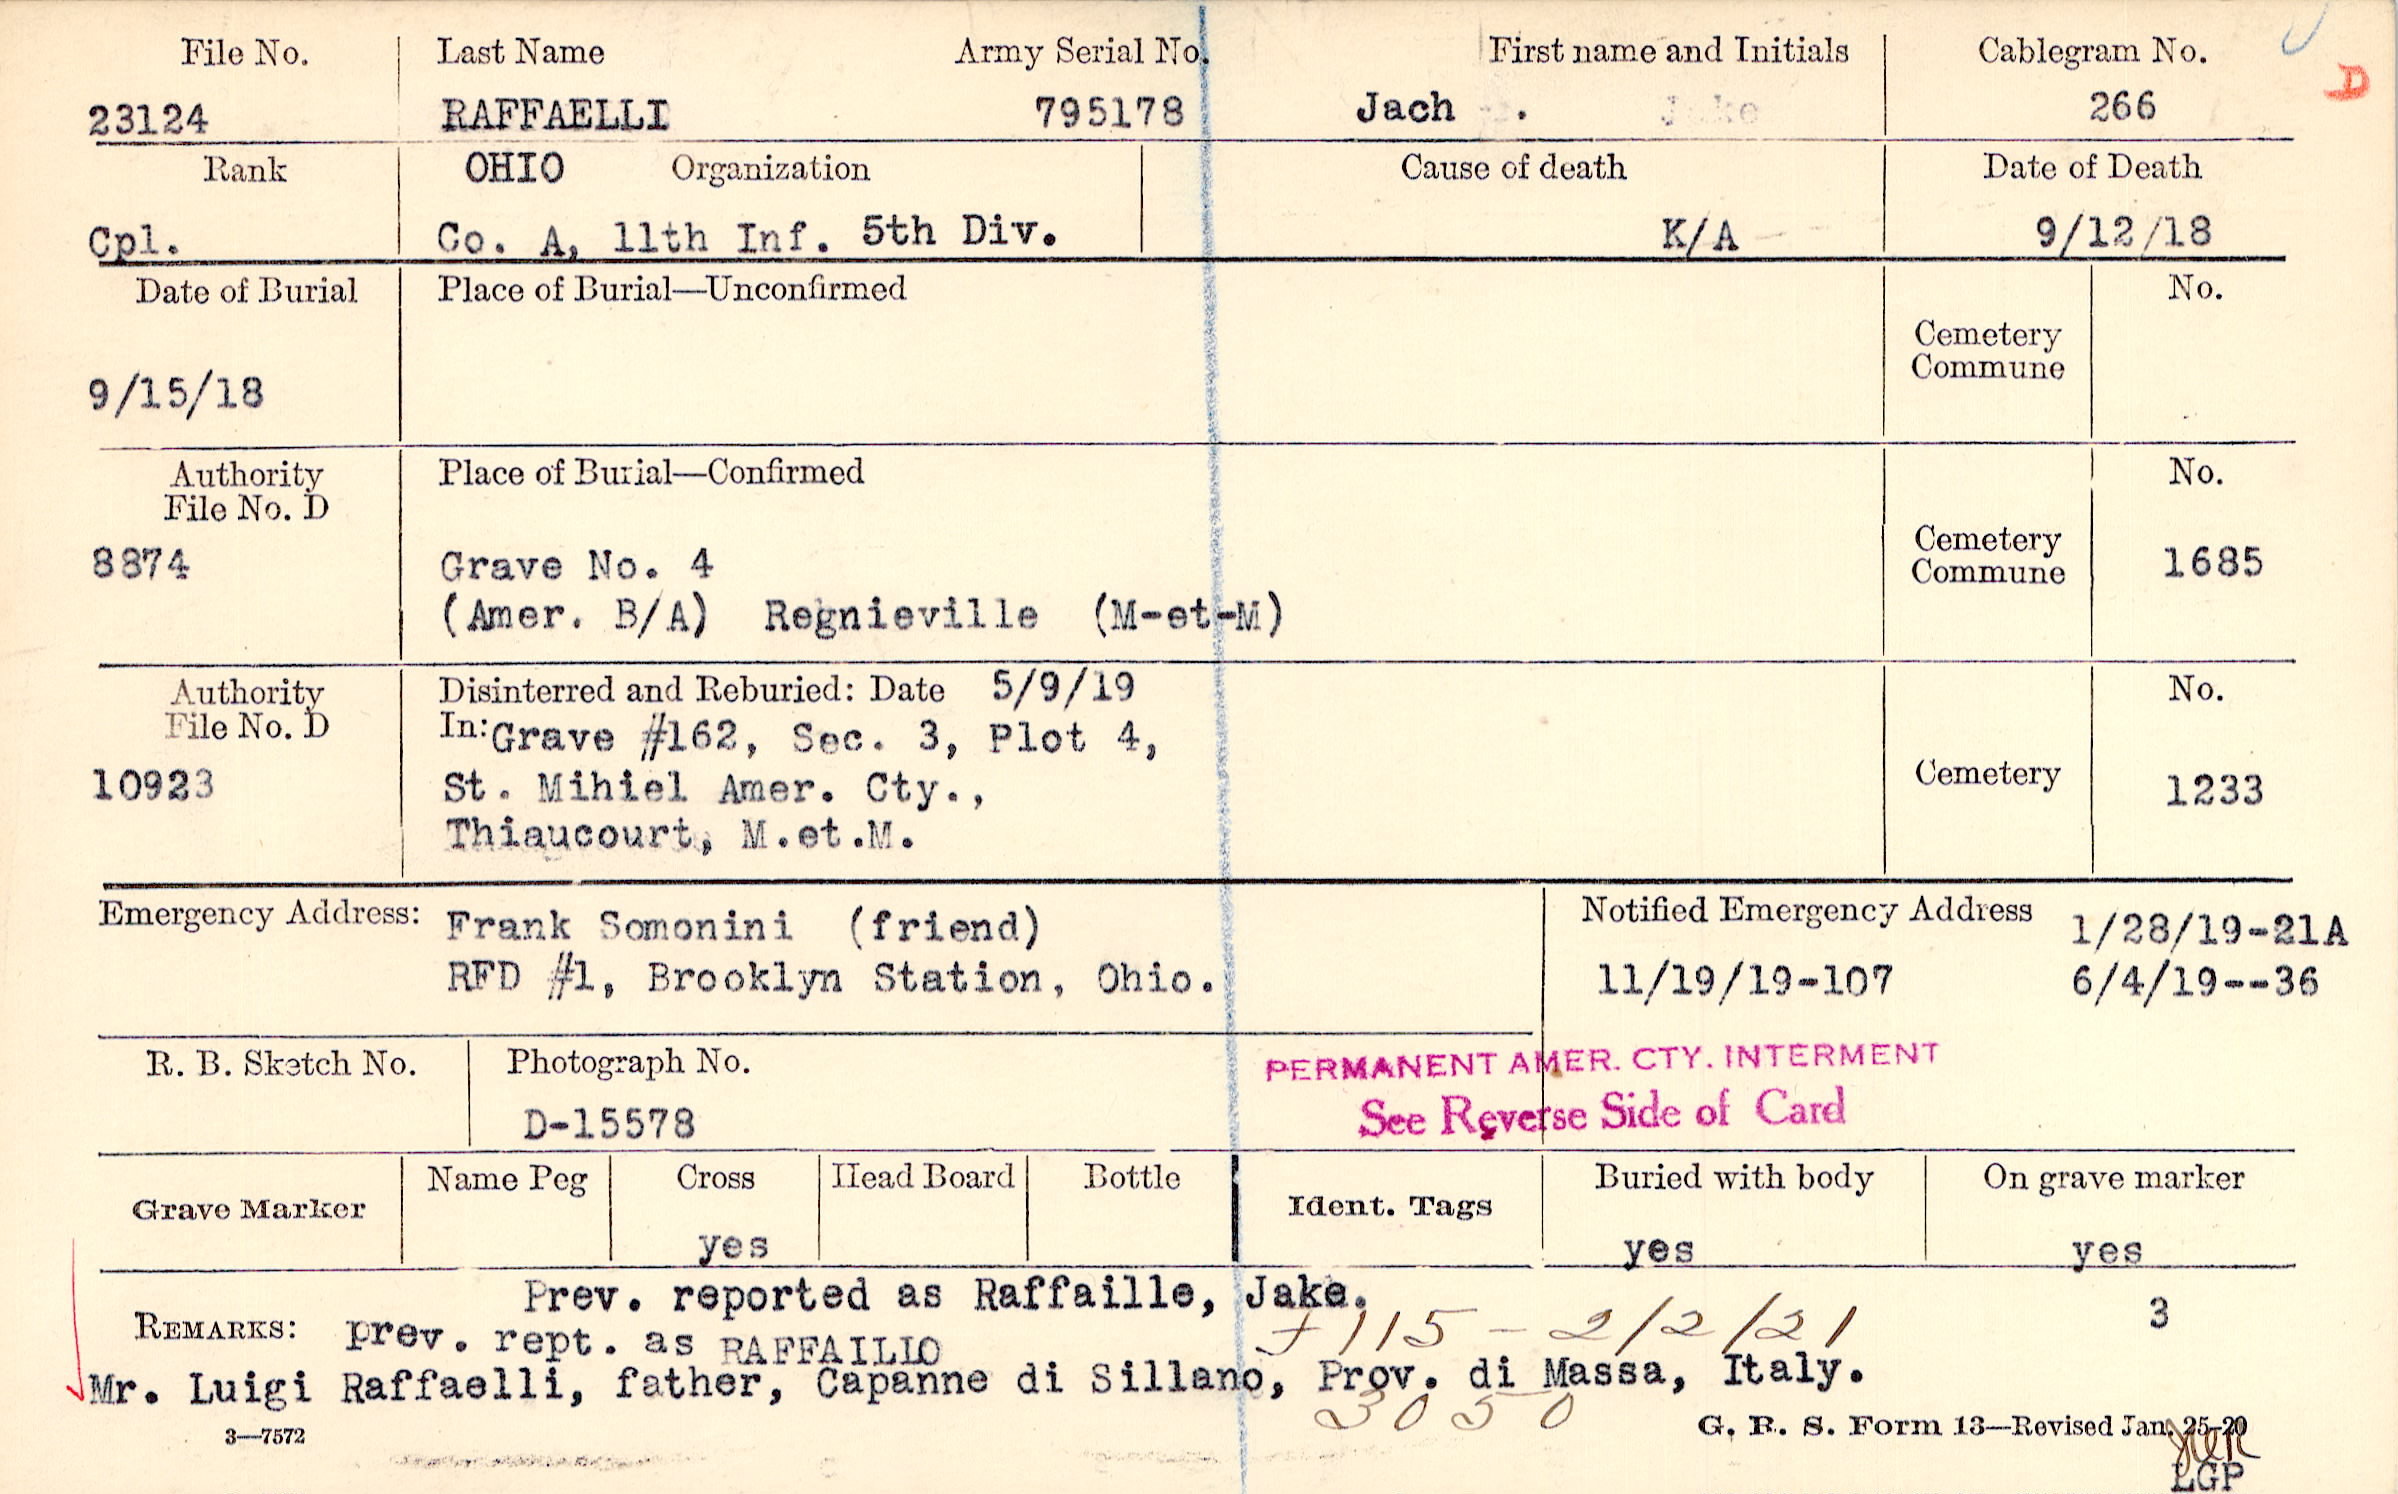 File No. Last Name Army Serial No. First name and Initials Cablegram No.
D
23124 RAFFAELLI 795178 Jach . Jake 266
Rank OHIO Organization Cause of death Date of Death
Cpl. Co. A, 11th Inf. 5th Div. K/A 9/12/18
Date of Burial Place of Burial—Unconfirmed No.
Cemetery
Commune
9/15/18
Authority Place of Burial—Confirmed No.
File No. D
8874 Grave No. 4 Cemetery Commune 1685
(Amer. B/A) Regnieville (M-et-M)
Authority Disinterred and Reburied: Date 5/9/19 No.
File No. D In: Grave #162, Sec. 3, Plot 4,
10923 St. Mihiel Amer. Cty., Cemetery 1233
Thiaucourt, M.et.M.
Emergency Address: Frank Somonini (friend) Notified Emergency Address 1/28/19-21A
RFD #1, Brooklyn Station, Ohio. 11/19/19-107 6/4/19--36
R. B. Sketch No. Photograph No. PERMANENT AMER. CTY. INTERMENT
D-15578 See Reverse Side of Card
Grave Marker Name Peg Cross Head Board Bottle Ident. Tags Buried with body On grave marker
yes yes yes
Prev. reported as Raffaille, Jake. 3
REMARKS: prev. rept. as RAFFAILLO 115 - 2/2/21
Mr. Luigi Raffaelli, father, Capanne di Sillano, Prov. di Massa, Italy.
3050
3—7572 G. R. S. Form 13—Revised Jan. 25-20
LGP